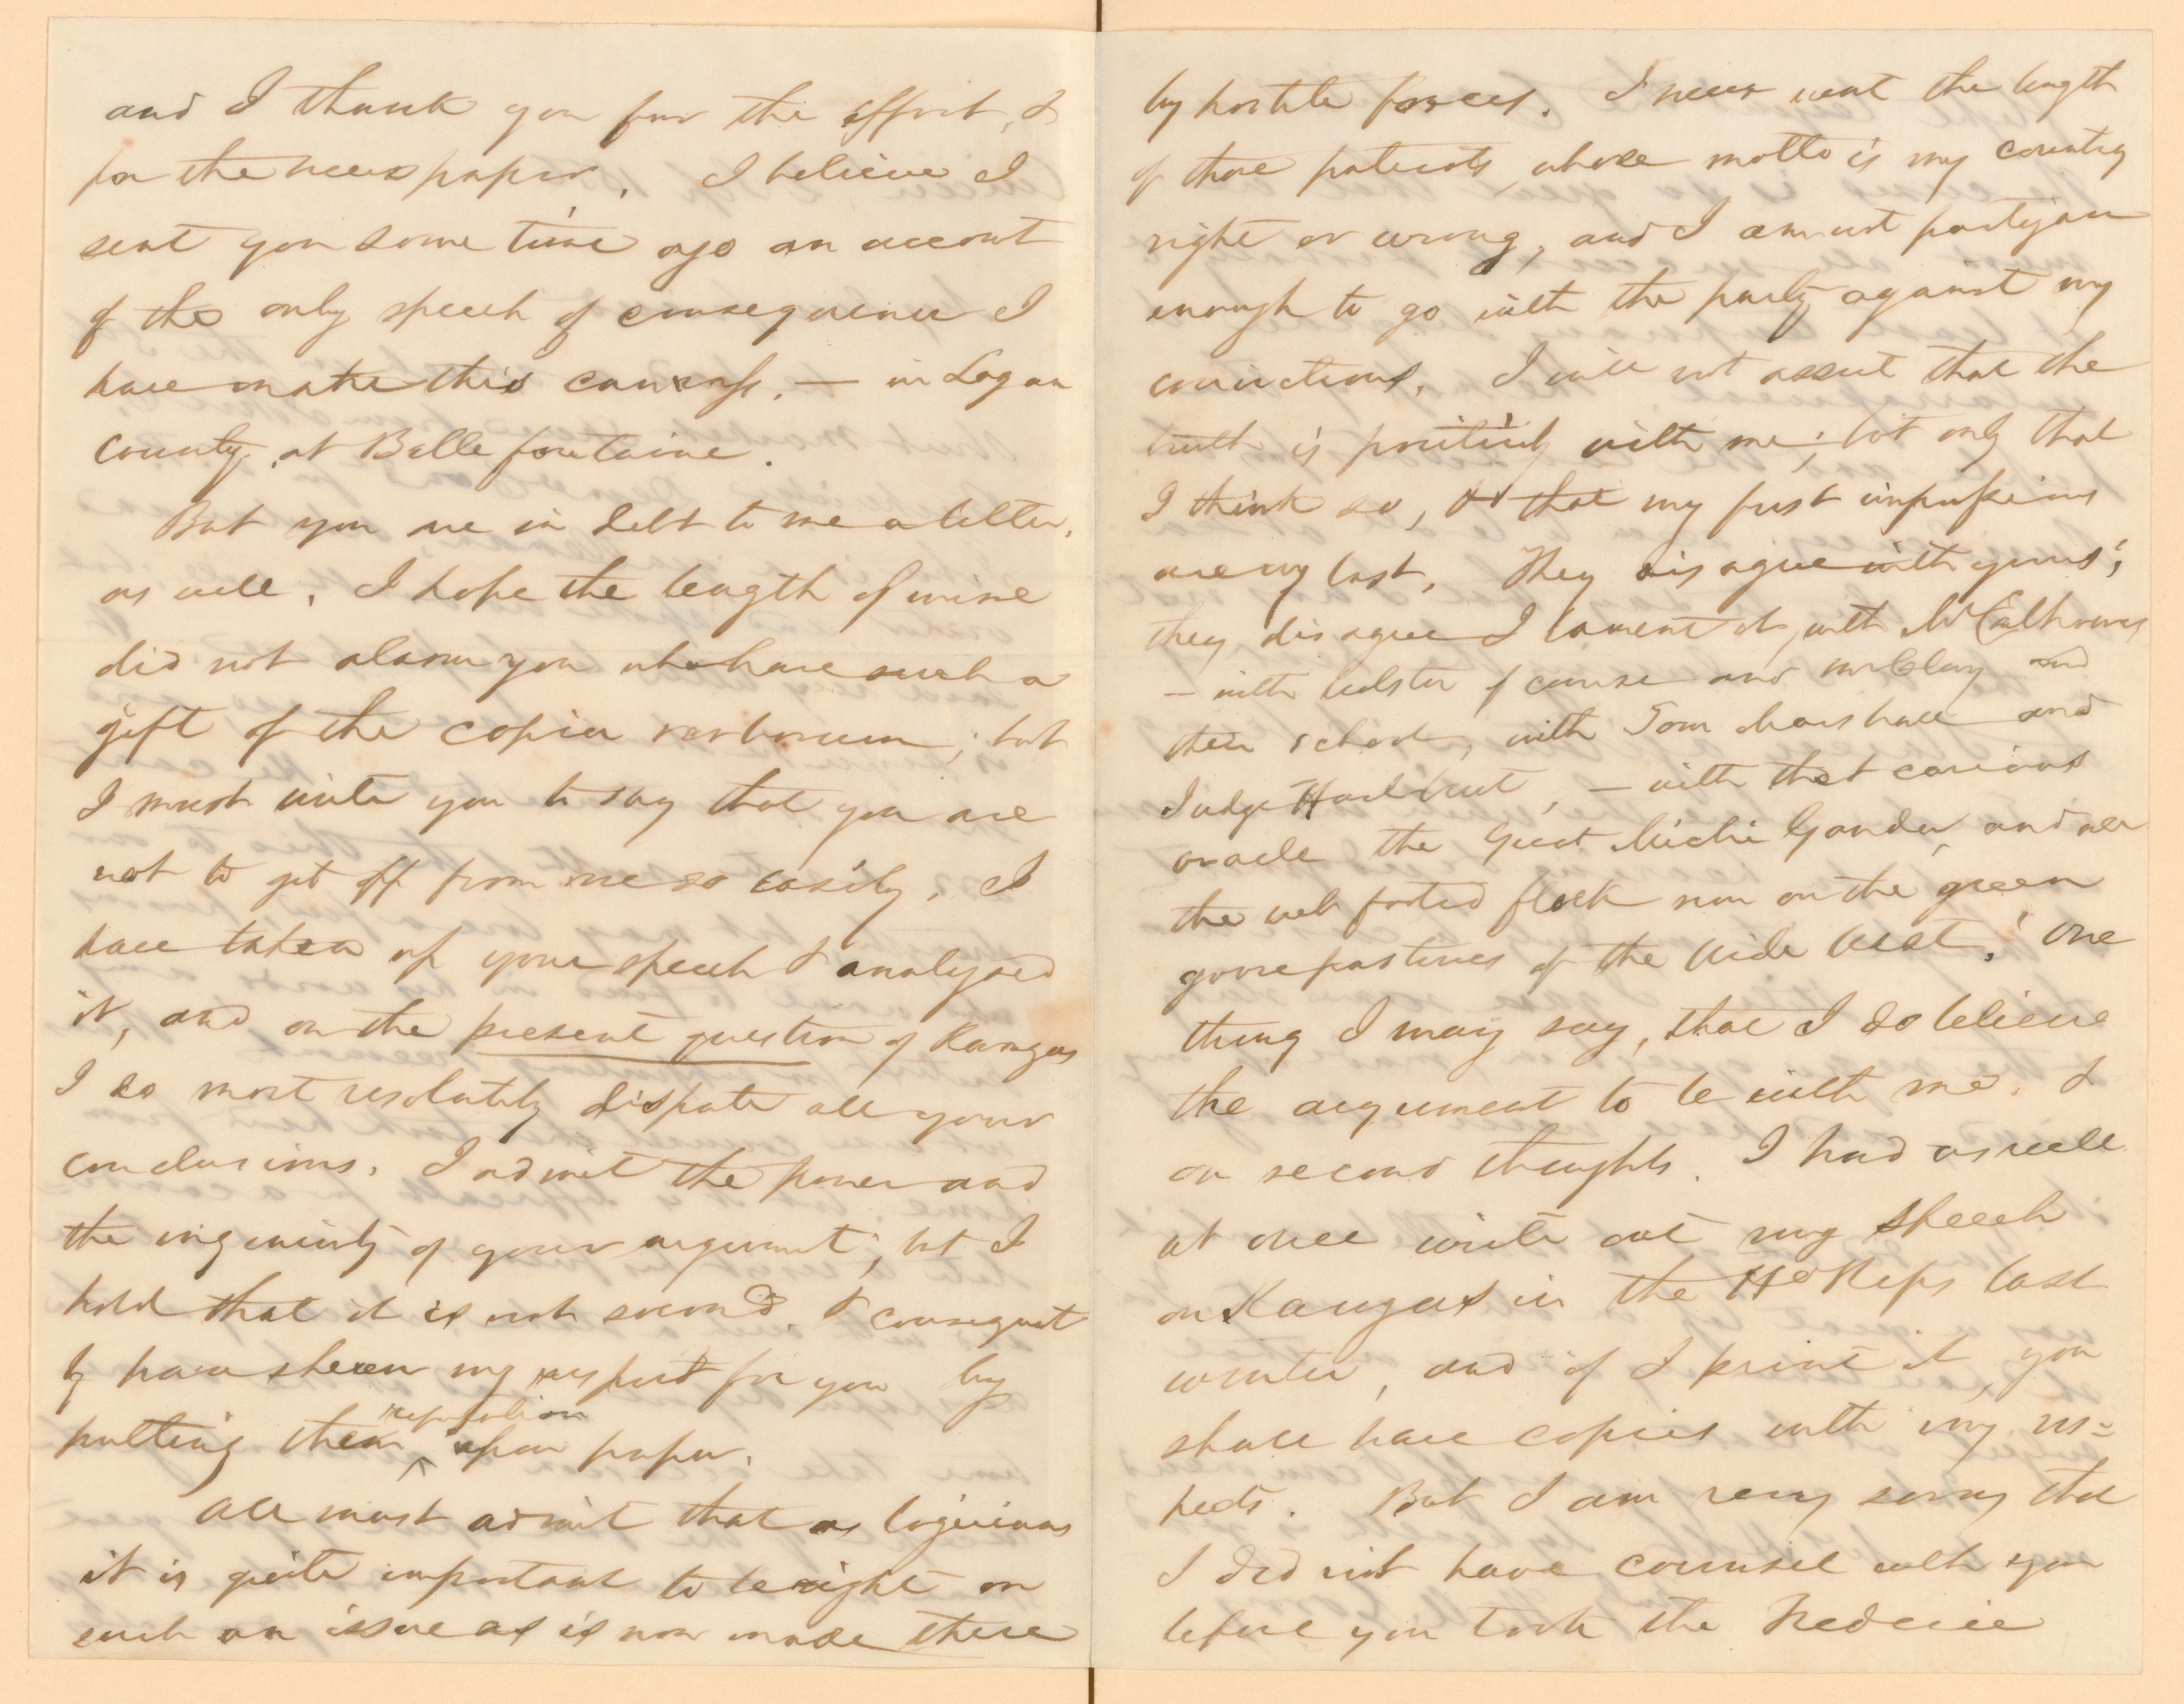 and I thank you for the effort, &
for the newspaper. I believe I
sent you some time ago an account
of the only speech of consequence I
have made this canvass, — in Logan
County, at Bellefontaine.
But you are in debt to me a letter,
as well, I hope the length of mine
did not alarm you who have such a
gift of the copia verborum; but
I must write you to say that you are
not to get off from me so easily. I
have taken up your speech & analyzed
it, and on the present question of Kanzas
I do most resolutely dispute all your
conclusions. I admit the power and
the ingenuity of your argument; but I
hold that it is not sound. & consequent
ly have shewn my respect for you by
putting their refutation upon paper.
All must admit that as logicians
it is quite important to be right on
such an issue as is now made there
by hostile forces. I never went the length
of those patriots, whose motto is my country
right or wrong, and I am not partizan
enough to go with the party against my
convictions. I will not assert that the
truth is positively with me; but only that
I think so, & that my first impressions
are my last. They disagree with yours;
they disagree I lament it, with Mr Calhouns
— with Webster of course and Mr Clay and
their school, with Tom Marshall and
Judge , — with that curious
oracle the great Michi Gander, and all
the web footed flock now on the green
goose pastures of the Wide West! One
thing I may say, that I do believe
the argument to be with me. &
on second thoughts. I had as well
at once write out my speech
on Kanzas in the Ho Reps last
winter, and if I print it, you
shall have copies with my res=
pects. But I am very sorry that
I did not have counsel with you
before you took the